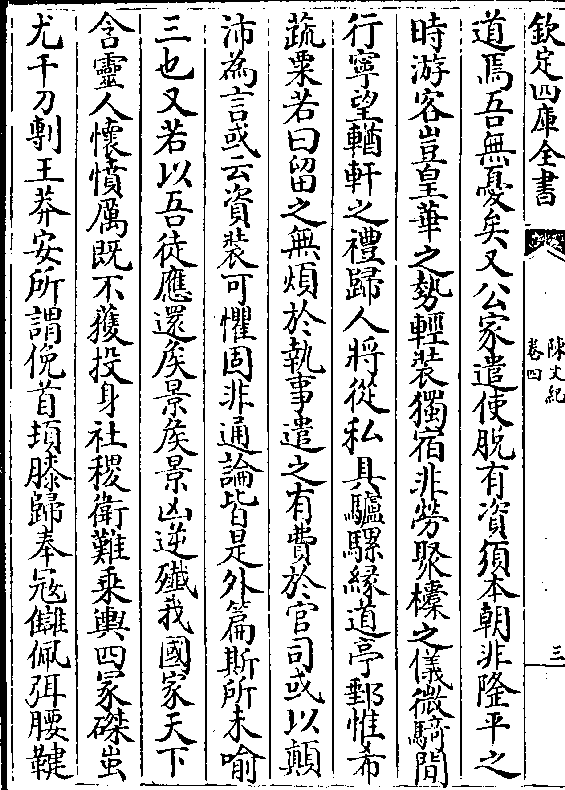 欽定四庫全書
陳文紀
卷四
三
道焉吾無憂矣又公家遣使脫有資須本朝非隆平之
時游客豈皇華之勢輕裝獨宿非勞聚櫜之儀微騎間
行寧望輶軒之禮歸人將從私具驢騾縁道亭郵惟希
蔬粟若曰留之無煩於執事遣之有費於官司或以顛
沛為言或云資裝可懼固非通論皆是外篇斯所未喻
三也又若以吾徒應還矦景矦景凶逆殲我國家天下
含靈人懷憤厲既不獲投身社稷衛難乗輿四冢磔蚩
尤千刀剸王莽安所謂俛首頓膝歸奉寇讎佩弭腰鞬